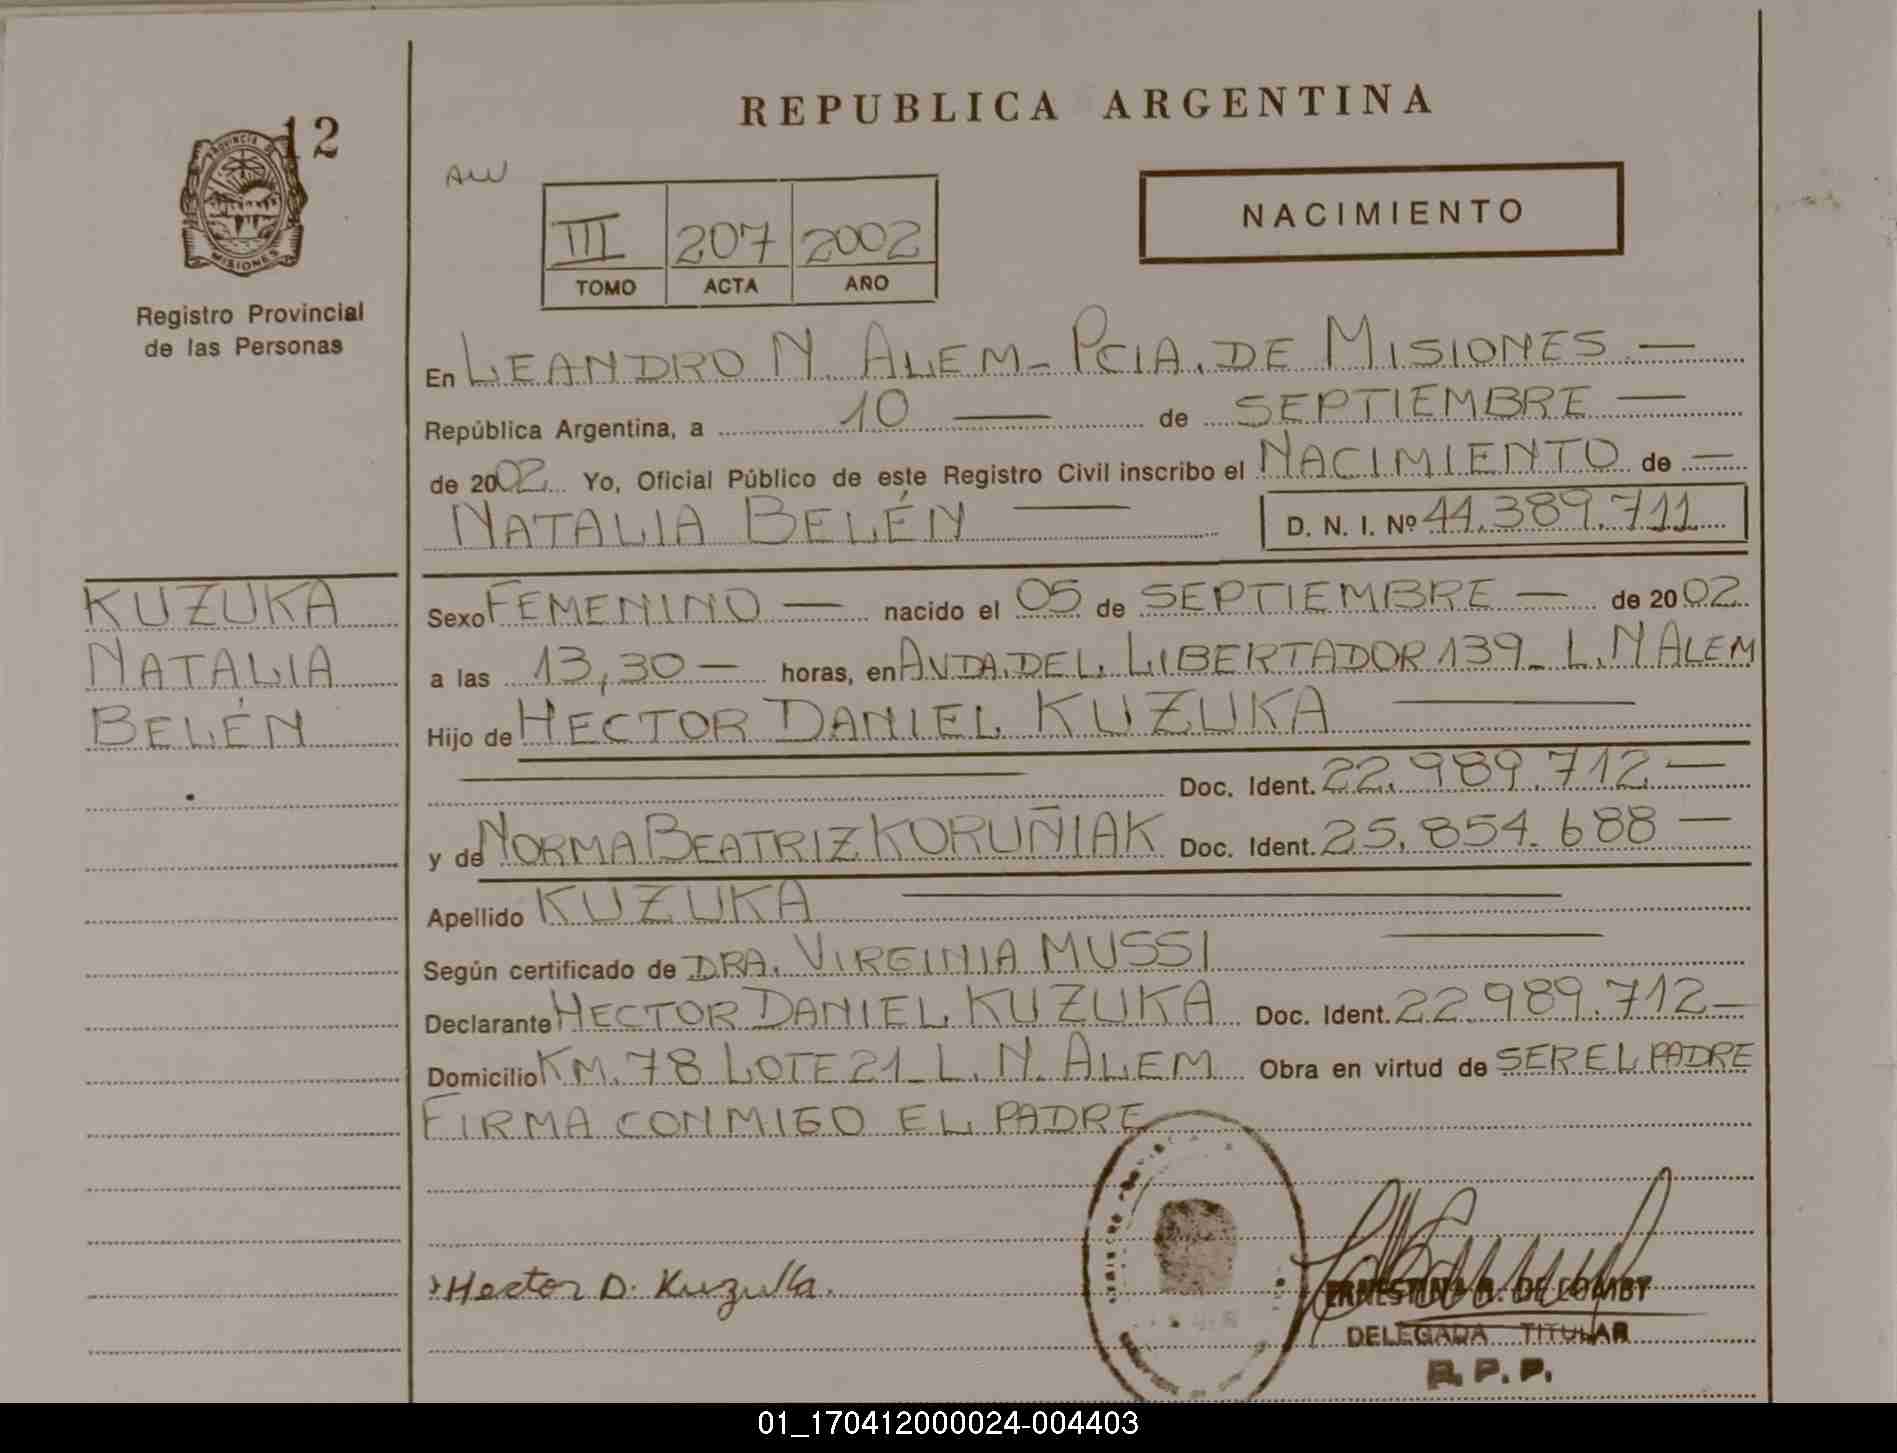 REPUBLICA ARGENTINA
12
PROVINCIA DE
MISIONES
Registro Provincial
de las Personas
AW
III 207 2002
TOMO ACTA AÑO
NACIMIENTO
En LEANDRO N. ALEM - PCIA. DE MISIONES —
República Argentina, a 10 — de SEPTIEMBRE —
de 2002 Yo, Oficial Público de este Registro Civil inscribo el NACIMIENTO de —
NATALIA BELÉN — D. N. I. Nº 44.389.711
KUZUKA
NATALIA
BELÉN
Sexo FEMENINO — nacido el 05 de SEPTIEMBRE — de 2002
a las 13,30 — horas, en AVDA. DEL LIBERTADOR 139 - L. N ALEM
Hijo de HECTOR DANIEL KUZUKA —
— Doc. Ident. 22.989.712 —
y de NORMA BEATRIZ KORUÑIAK Doc. Ident. 25.854.688 —
Apellido KUZUKA —
Según certificado de DRA. VIRGINIA MUSSI —
Declarante HECTOR DANIEL KUZUKA Doc. Ident. 22.989.712 —
Domicilio KM. 78 LOTE 21 - L. N. ALEM Obra en virtud de SER EL PADRE
FIRMA CONMIGO EL PADRE
Hector D. Kuzuka.
DELEGADA TITULAR
R. P. P.
01_170412000024-004403